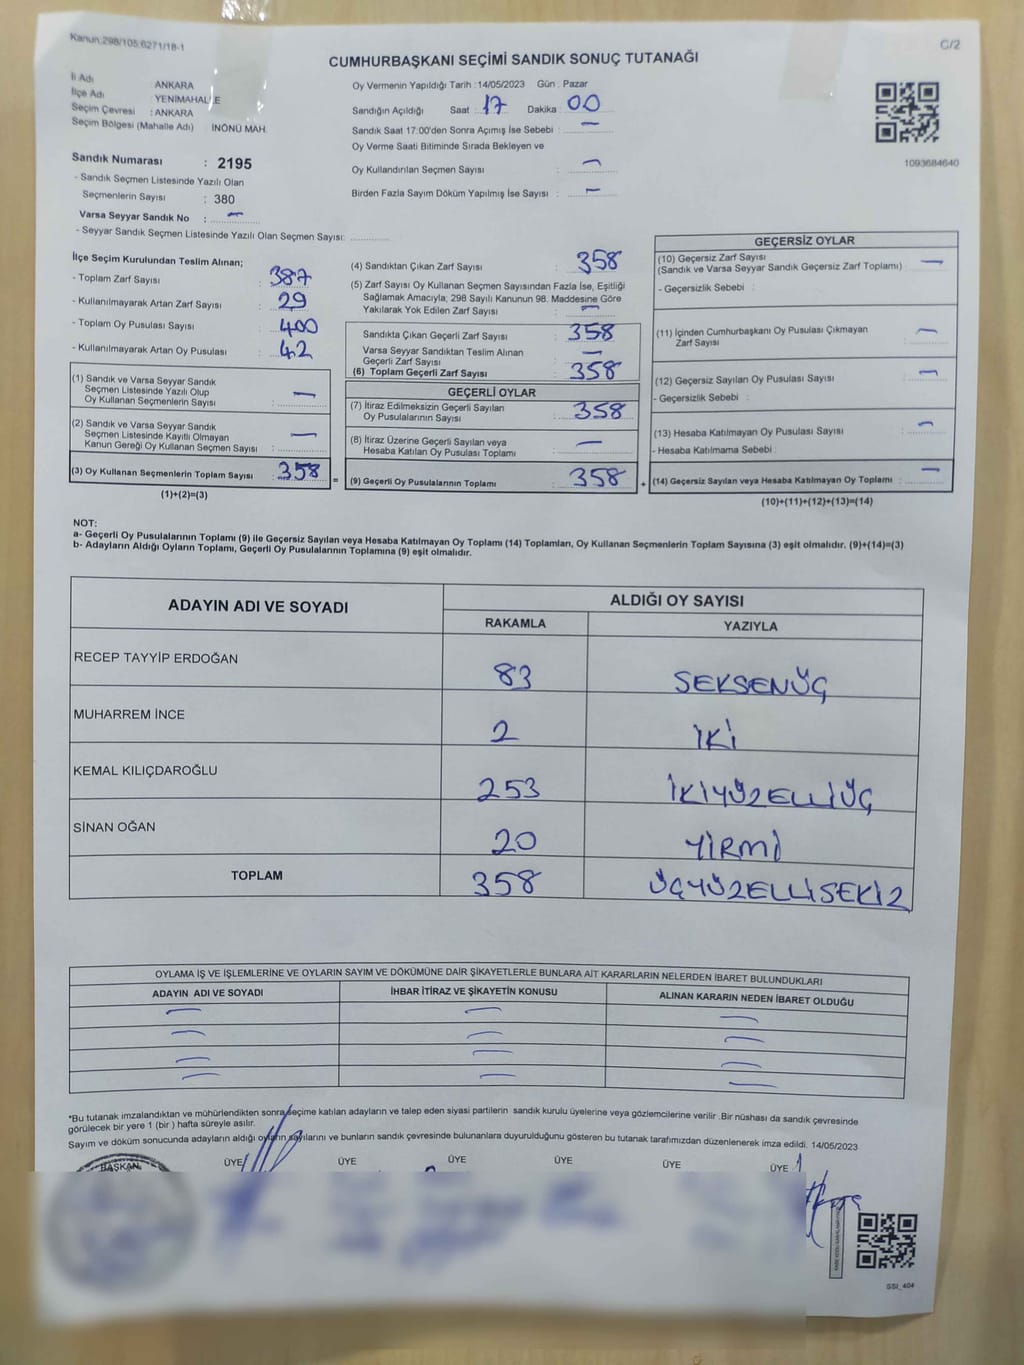 Kanun:298/105:6271/18-1
C/2
CUMHURBAŞKANI SEÇİMİ SANDIK SONUÇ TUTANAĞI
İl Adı ANKARA
İlçe Adı YENİMAHALLE
Seçim Çevresi : ANKARA
Seçim Bölgesi (Mahalle Adı) : İNÖNÜ MAH.
Sandık Numarası : 2195
- Sandık Seçmen Listesinde Yazılı Olan
Seçmenlerin Sayısı : 380
Varsa Seyyar Sandık No : —
- Seyyar Sandık Seçmen Listesinde Yazılı Olan Seçmen Sayısı:
Oy Vermenin Yapıldığı Tarih :14/05/2023 Gün : Pazar
Sandığın Açıldığı Saat : 17 Dakika : 00
Sandık Saat 17:00'den Sonra Açımış İse Sebebi : —
Oy Verme Saati Bitiminde Sırada Bekleyen ve
Oy Kullandırılan Seçmen Sayısı : —
Birden Fazla Sayım Döküm Yapılmış İse Sayısı : —
1093684640
İlçe Seçim Kurulundan Teslim Alınan;
- Toplam Zarf Sayısı : 387
- Kullanılmayarak Artan Zarf Sayısı : 29
- Toplam Oy Pusulası Sayısı : 400
- Kullanılmayarak Artan Oy Pusulası : 42
(1) Sandık ve Varsa Seyyar Sandık
Seçmen Listesinde Yazılı Olup
Oy Kullanan Seçmenlerin Sayısı : —
(2) Sandık ve Varsa Seyyar Sandık
Seçmen Listesinde Kayıtlı Olmayan
Kanun Gereği Oy Kullanan Seçmen Sayısı : —
(3) Oy Kullanan Seçmenlerin Toplam Sayısı : 358 =
(1)+(2)=(3)
(4) Sandıktan Çıkan Zarf Sayısı : 358
(5) Zarf Sayısı Oy Kullanan Seçmen Sayısından Fazla İse, Eşitliği
Sağlamak Amacıyla; 298 Sayılı Kanunun 98. Maddesine Göre
Yakılarak Yok Edilen Zarf Sayısı : —
Sandıkta Çıkan Geçerli Zarf Sayısı : 358
Varsa Seyyar Sandıktan Teslim Alınan
Geçerli Zarf Sayısı : —
(6) Toplam Geçerli Zarf Sayısı : 358
GEÇERLİ OYLAR
(7) İtiraz Edilmeksizin Geçerli Sayılan
Oy Pusulalarının Sayısı : 358
(8) İtiraz Üzerine Geçerli Sayılan veya
Hesaba Katılan Oy Pusulası Toplamı : —
(9) Geçerli Oy Pusulalarının Toplamı : 358 +
GEÇERSİZ OYLAR
(10) Geçersiz Zarf Sayısı : —
(Sandık ve Varsa Seyyar Sandık Geçersiz Zarf Toplamı)
- Geçersizlik Sebebi :
(11) İçinden Cumhurbaşkanı Oy Pusulası Çıkmayan
Zarf Sayısı : —
(12) Geçersiz Sayılan Oy Pusulası Sayısı : —
- Geçersizlik Sebebi :
(13) Hesaba Katılmayan Oy Pusulası Sayısı : —
- Hesaba Katılmama Sebebi :
(14) Geçersiz Sayılan veya Hesaba Katılmayan Oy Toplamı : —
(10)+(11)+(12)+(13)=(14)
NOT:
a- Geçerli Oy Pusulalarının Toplamı (9) ile Geçersiz Sayılan veya Hesaba Katılmayan Oy Toplamı (14) Toplamları, Oy Kullanan Seçmenlerin Toplam Sayısına (3) eşit olmalıdır. (9)+(14)=(3)
b- Adayların Aldığı Oyların Toplamı, Geçerli Oy Pusulalarının Toplamına (9) eşit olmalıdır.
ADAYIN ADI VE SOYADI ALDIĞI OY SAYISI
RAKAMLA YAZIYLA
RECEP TAYYİP ERDOĞAN 83 SEKSENÜÇ
MUHARREM İNCE 2 İKİ
KEMAL KILIÇDAROĞLU 253 İKİYÜZELLİÜÇ
SİNAN OĞAN 20 YİRMİ
TOPLAM 358 ÜÇYÜZELLİSEKİZ
OYLAMA İŞ VE İŞLEMLERİNE VE OYLARIN SAYIM VE DÖKÜMÜNE DAİR ŞİKAYETLERLE BUNLARA AİT KARARLARIN NELERDEN İBARET BULUNDUKLARI
ADAYIN ADI VE SOYADI İHBAR İTİRAZ VE ŞİKAYETİN KONUSU ALINAN KARARIN NEDEN İBARET OLDUĞU
— — —
— — —
— — —
— — —
*Bu tutanak imzalandıktan ve mühürlendikten sonra seçime katılan adayların ve talep eden siyasi partilerin sandık kurulu üyelerine veya gözlemcilerine verilir .Bir nüshası da sandık çevresinde
görülecek bir yere 1 (bir ) hafta süreyle asılır.
Sayım ve döküm sonucunda adayların aldığı oyların sayılarını ve bunların sandık çevresinde bulunanlara duyurulduğunu gösteren bu tutanak tarafımızdan düzenlenerek imza edildi. 14/05/2023
BAŞKAN ÜYE ÜYE ÜYE ÜYE ÜYE ÜYE
SSI_404